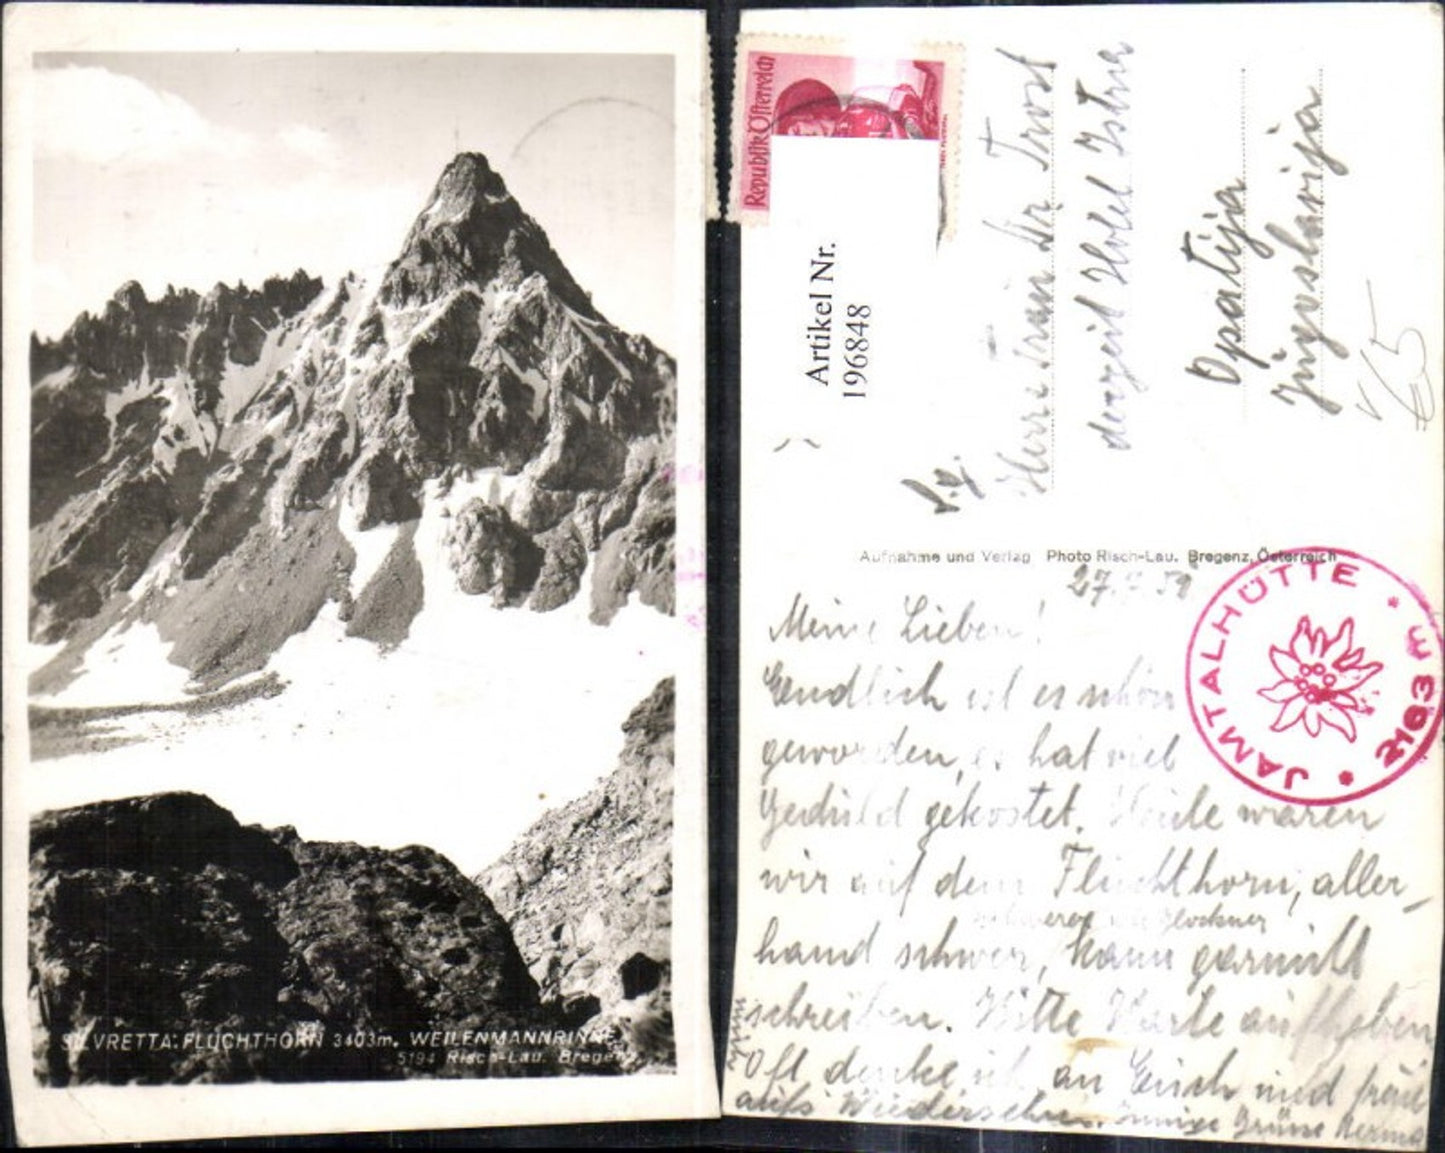 SILVRETTA: FLUCHTHORN 3403m. WEILENMANNRINNE
5194 Risch-Lau. Bregenz
Republik Österreich
Artikel Nr.
196848
Dr. Trost
derzeit Hotel Istra
Opatija
Jugoslavija
Aufnahme und Verlag Photo Risch-Lau. Bregenz, Österreich
JAMTALHÜTTE * 2163 M *
Meine Lieben!
Endlich ist es schön
geworden, es hat viel
Geduld gekostet. Heute waren
wir auf dem Fluchthorn, aller-
schwerer Glockner
hand schwer, kann garnicht
schreiben. Bitte Karte aufheben
Oft denke ich an Euch und freue
aufs Wiedersehen. Innige Grüsse